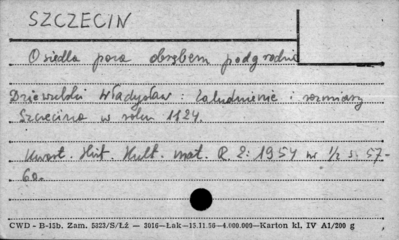 SZCZECIN
Osiedla poza obrębem podgrodzi
Dziewulski Władysław: Zaludnienie i rozmiary
Szczecina w roku 1124.
Kwart. Hist. Kult. mat. R. 2: 1954 nr 1/2 s. 57-
60.
CWD - B-15b. Zam. 5823/S/Łż — 3016—Lak—15.11.56—4.000.000—Karton kl. IV A1/200 g